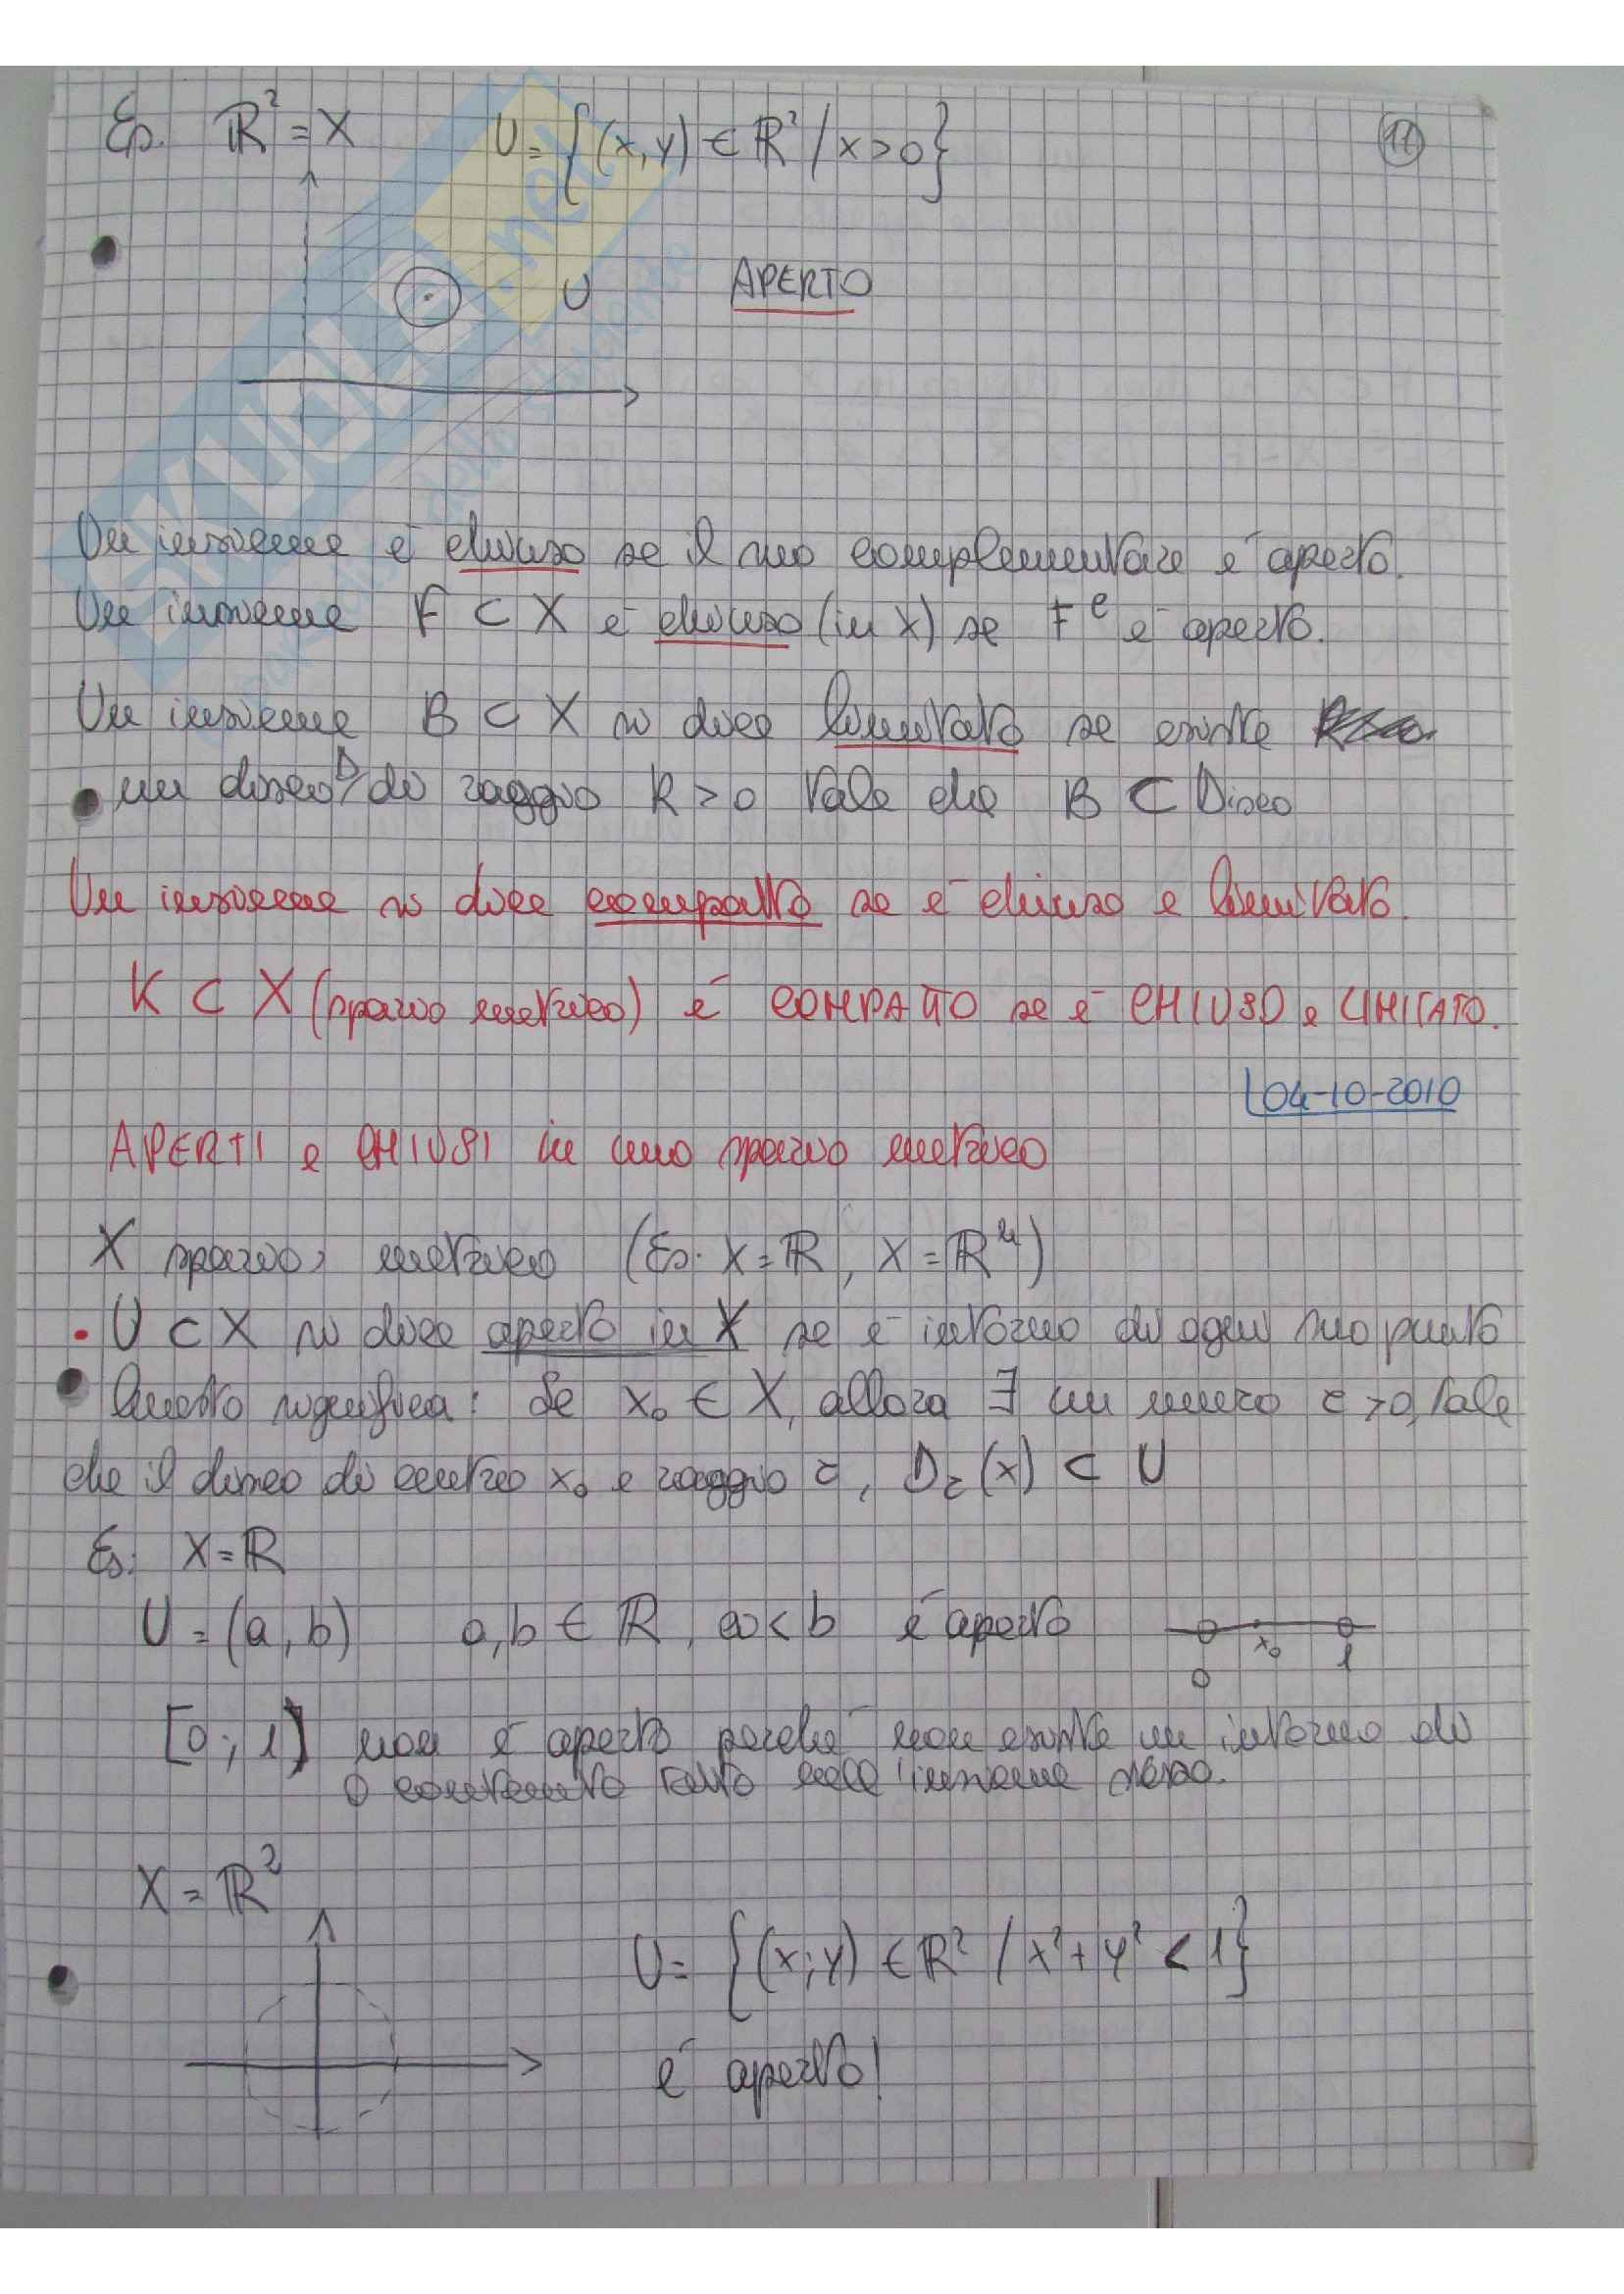 Es. ℝ² = X U = {(x,y) ∈ ℝ² / x > 0}
11
U APERTO
Un insieme è chiuso se il suo complementare è aperto.
Un insieme F ⊂ X è chiuso (in X) se Fᶜ è aperto.
Un insieme B ⊂ X si dice limitato se esiste
un disco D di raggio R > 0 tale che B ⊂ Disco
Un insieme si dice compatto se è chiuso e limitato.
K ⊂ X (spazio metrico) è COMPATTO se è CHIUSO e LIMITATO.
04-10-2010
APERTI e CHIUSI in uno spazio metrico
X spazio metrico (Es. X = ℝ, X = ℝⁿ)
• U ⊂ X si dice aperto in X se è intorno di ogni suo punto
Questo significa: Se x₀ ∈ X, allora ∃ un numero r > 0, tale
che il disco di centro x₀ e raggio r, Dr(x) ⊂ U
Es. X = ℝ
U = (a, b) a, b ∈ ℝ, a < b è aperto
x₀
0 1
[0; 1) non è aperto perché non esiste un intorno di
0 contenuto tutto nell'insieme stesso.
X = ℝ²
U = {(x; y) ∈ ℝ² / x² + y² < 1}
è aperto!
SKUOLA.net